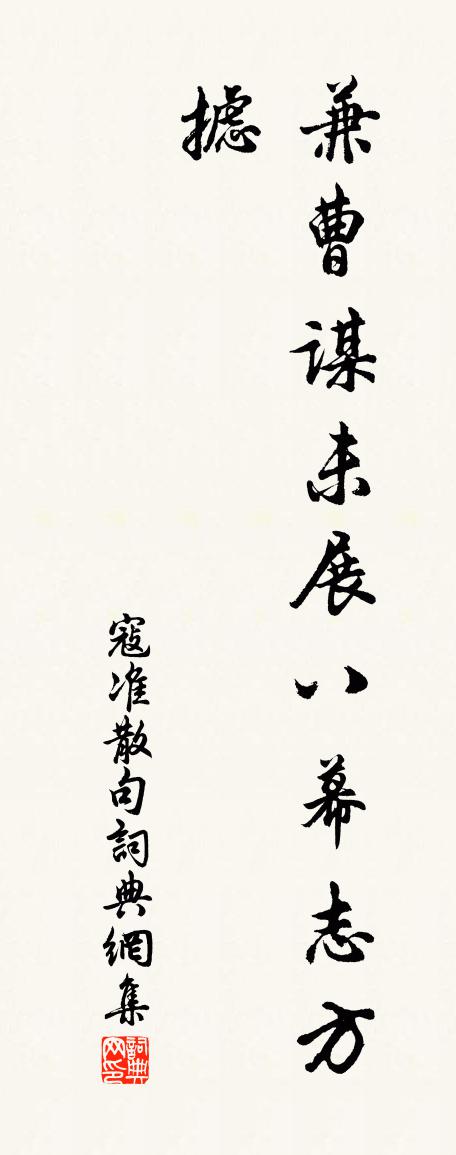 兼曹謀未展八幕志方
攄
寇准散句詞典網集
詞典
网印